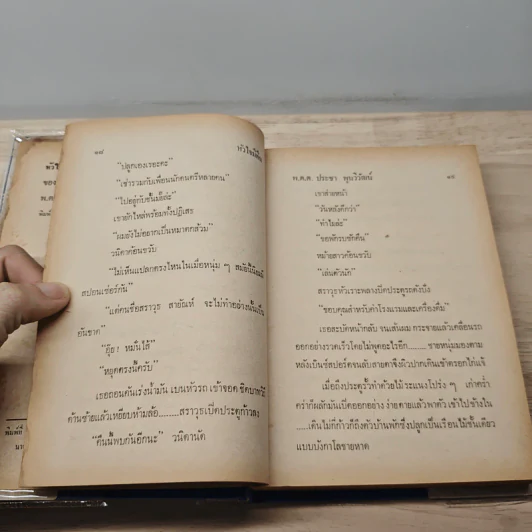 ๑๘
"ปลูกเองเรอะคะ"
"เช่าร่วมกับเพื่อนนักดนตรีหลายคน"
"ไปอยู่กับชั้นมั้ยล่ะ"
เขายักไหล่พร้อมทั้งปฏิเสธ
"ผมยังไม่อยากเป็นหมาตกส้วม"
วนิดาค้อนขวับ
"ไม่เห็นแปลกตรงไหนในเมื่อหนุ่ม ๆ สมัยนี้นิยมมี
สปอนเซ่อร์กัน"
"แต่คนชื่อสราวุธ สายัณห์ จะไม่ทำอย่างนั้นเป็น
อันขาด"
"อุ๊ย! หมั่นไส้"
"หยุดตรงนี้ครับ"
เธอถอนคันเร่งน้ำมัน เบนหัวรถ เข้าจอด ชิดบาทวิถี
ด้านซ้ายแล้วเหยียบห้ามล้อ.........สราวุธเปิดประตูก้าวลง
"คืนนี้พบกันอีกนะ" วนิดานัด
พ.ต.ต. ประชา พูนวิวัฒน์
๑๙
เขาส่ายหน้า
"วันหลังดีกว่า"
"ทำไมล่ะ"
"ขอพักรบซักคืน"
หม้ายสาวค้อนขวับ
"เล่นตัวนัก"
สราวุธหัวเราะพลางปิดประตูรถดังปึง
"ขอบคุณสำหรับค่าโรงแรมและเครื่องดื่ม"
เธอสะบัดหน้ากลับ จนเส้นผม กระจายแล้วเคลื่อนรถ
ออกอย่างรวดเร็วโดยไม่พูดอะไรอีก......... ชายหนุ่มมองตาม
หลังเบ็นซ์สปอร์ตจนลับสายตาจึงผิวปากเดินเข้าตรอกไก่แจ้
เมื่อถึงประตูรั้วทำด้วยไม้ระแนงโปร่ง ๆ เก่าคร่ำ
คร่าก็ผลักมันเปิดออกอย่าง ง่ายดายแล้วพาตัว เข้าไปข้างใน
......เดินไม่กี่ก้าวก็ถึงตัวบ้านพักซึ่งปลูกเป็นเรือนไม้ชั้นเดียว
แบบบังกาโลชายหาด